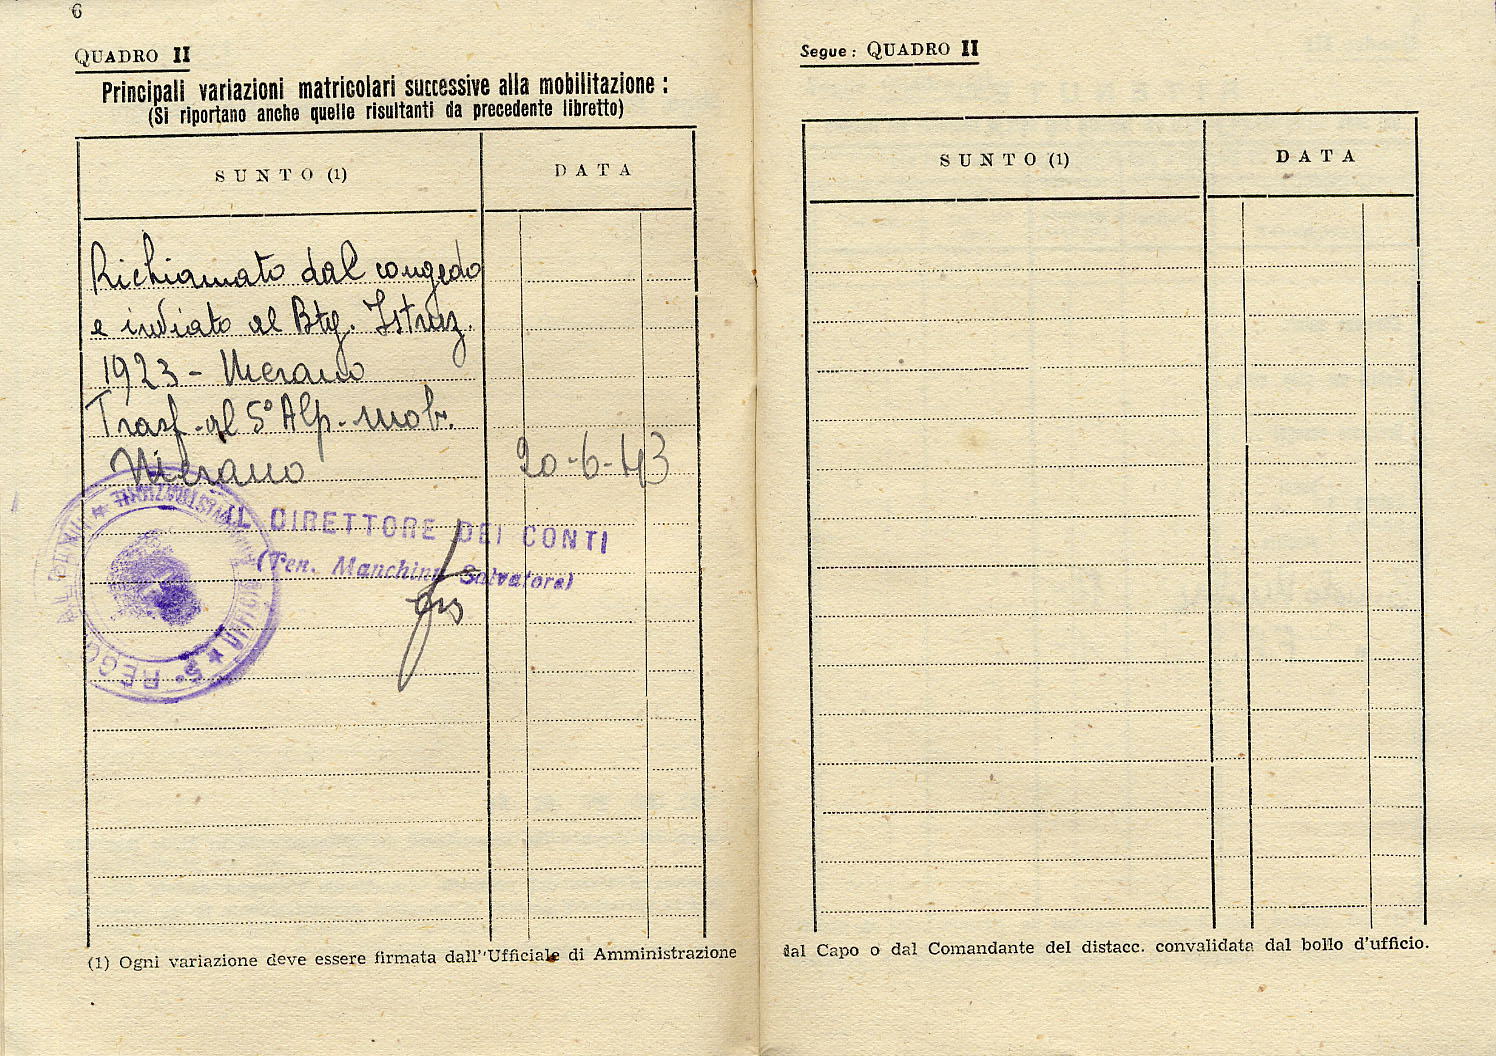 6
QUADRO II
Principali variazioni matricolari successive alla mobilitazione :
(Si riportano anche quelle risultanti da precedente libretto)
SUNTO (1)
DATA
Richiamato dal congedo
e inviato al Btg. Istruz.
1923 - Merano
Trasf. al 5° Alp. mob.
Merano
20-6-43
IL DIRETTORE DEI CONTI
(Ten. Manchinu Salvatore)
5° REGG
ALPINI
UFFICIO
(1) Ogni variazione deve essere firmata dall''Ufficiale di Amministrazione
Segue : QUADRO II
SUNTO (1)
DATA
dal Capo o dal Comandante del distacc. convalidata dal bollo d'ufficio.